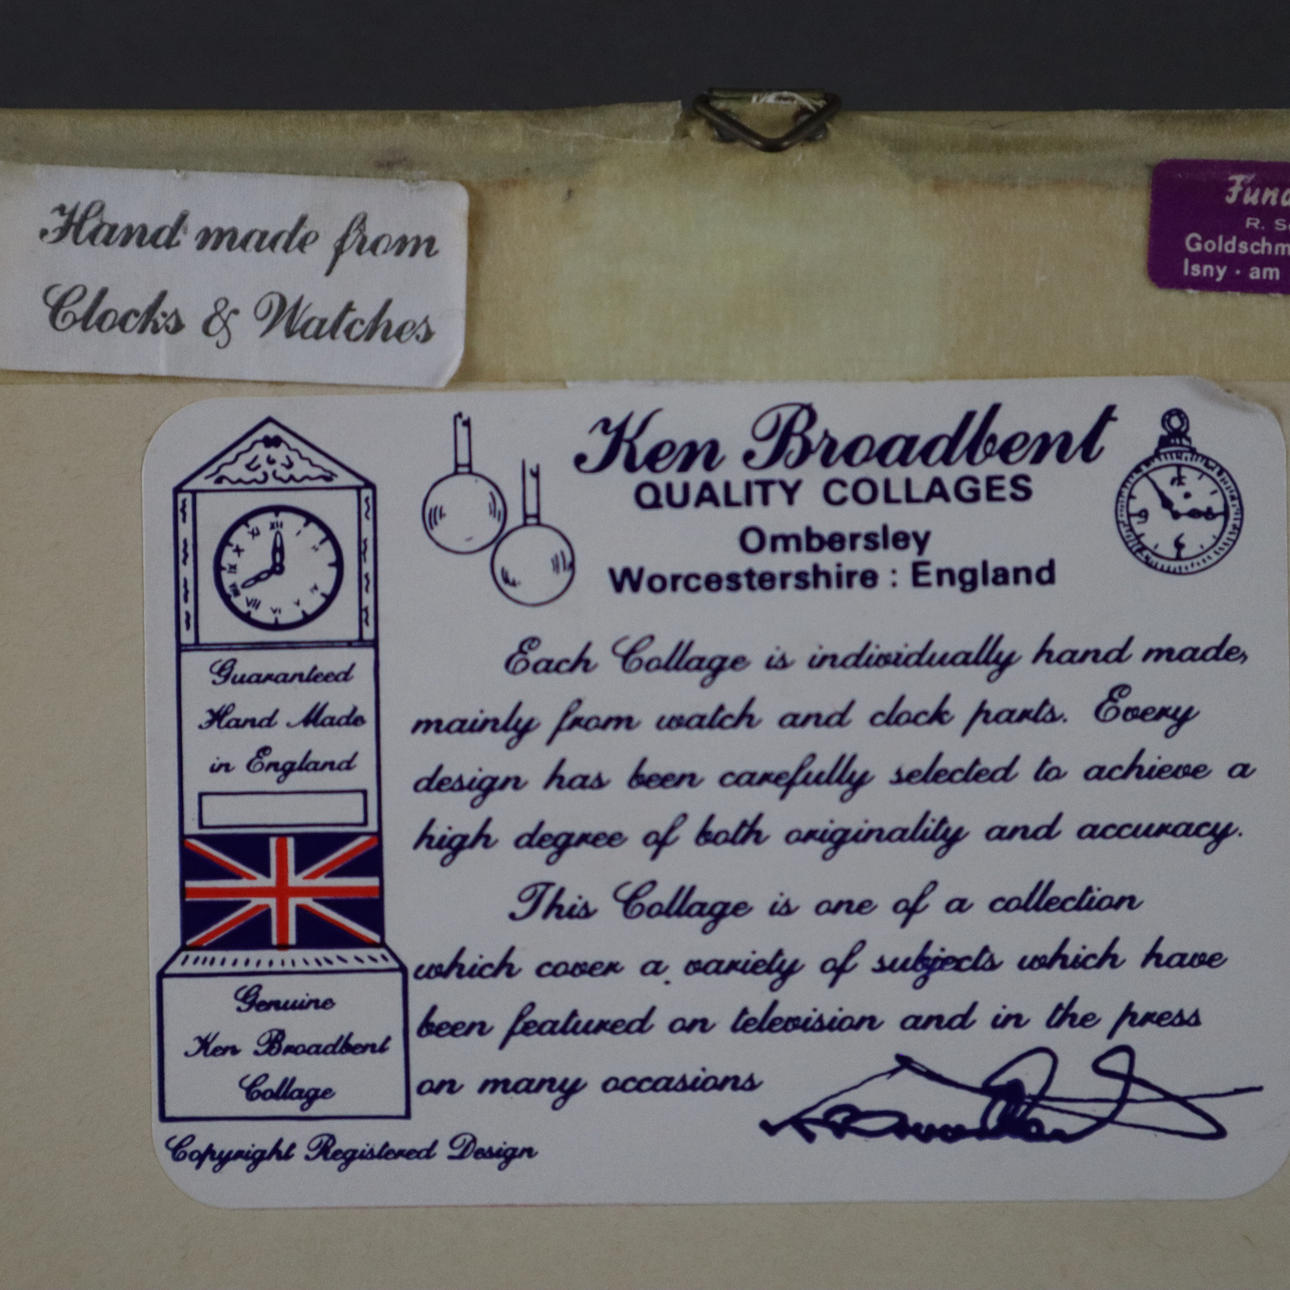 Hand made from
Clocks & Watches
R.
Goldschm
Isny · am
Ken Broadbent
QUALITY COLLAGES
Ombersley
Worcestershire : England
XII
Guaranteed
Hand Made
in England
Each Collage is individually hand made,
mainly from watch and clock parts. Every
design has been carefully selected to achieve a
high degree of both originality and accuracy.
This Collage is one of a collection
which cover a variety of subjects which have
been featured on television and in the press
on many occasions
Genuine
Ken Broadbent
Collage
Copyright Registered Design